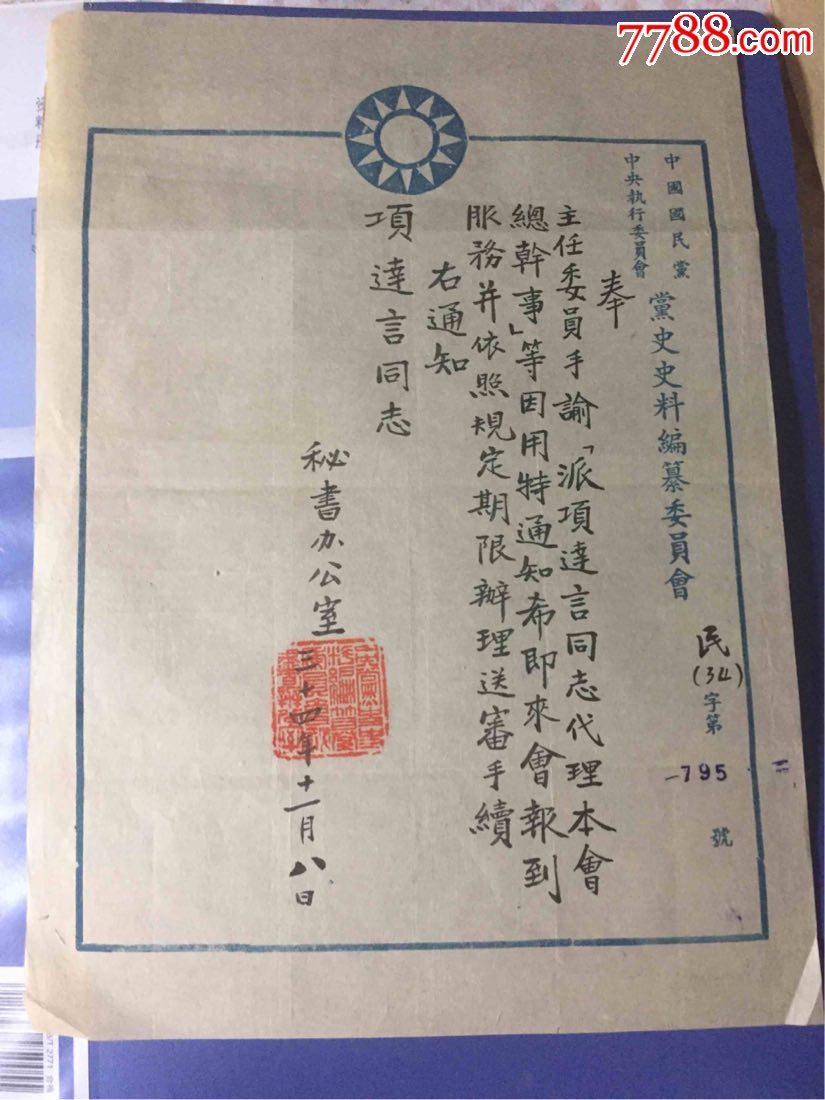 7788.com
中國國民黨
中央執行委員會
黨史史料編纂委員會
民(34)字第
795
號
奉
主任委員手諭「派項達言同志代理本會
總幹事」等因用特通知希即來會報到
服務并依照規定期限辦理送審手續
右通知
項達言同志
秘書办公室
三十四年十一月八日
2771